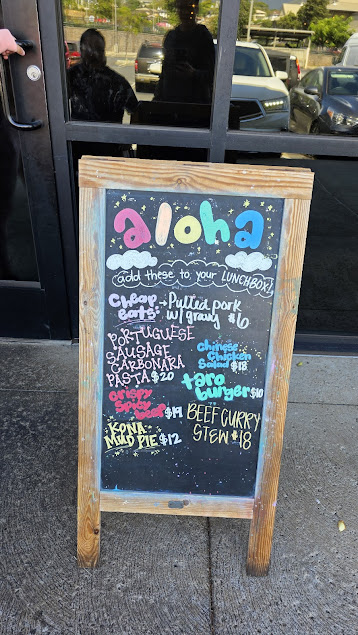 aloha
add these to your LUNCHBOX!
Cheap eats: → Pulled pork
w/ gravy $6
PORTUGUESE
SAUSAGE
CARBONARA
PASTA $20
Chinese
Chicken
Salad $18
taro
burger $10
Crispy
Spicy beef $19
BEEF CURRY
STEW $18
KONA
MUD PIE $12